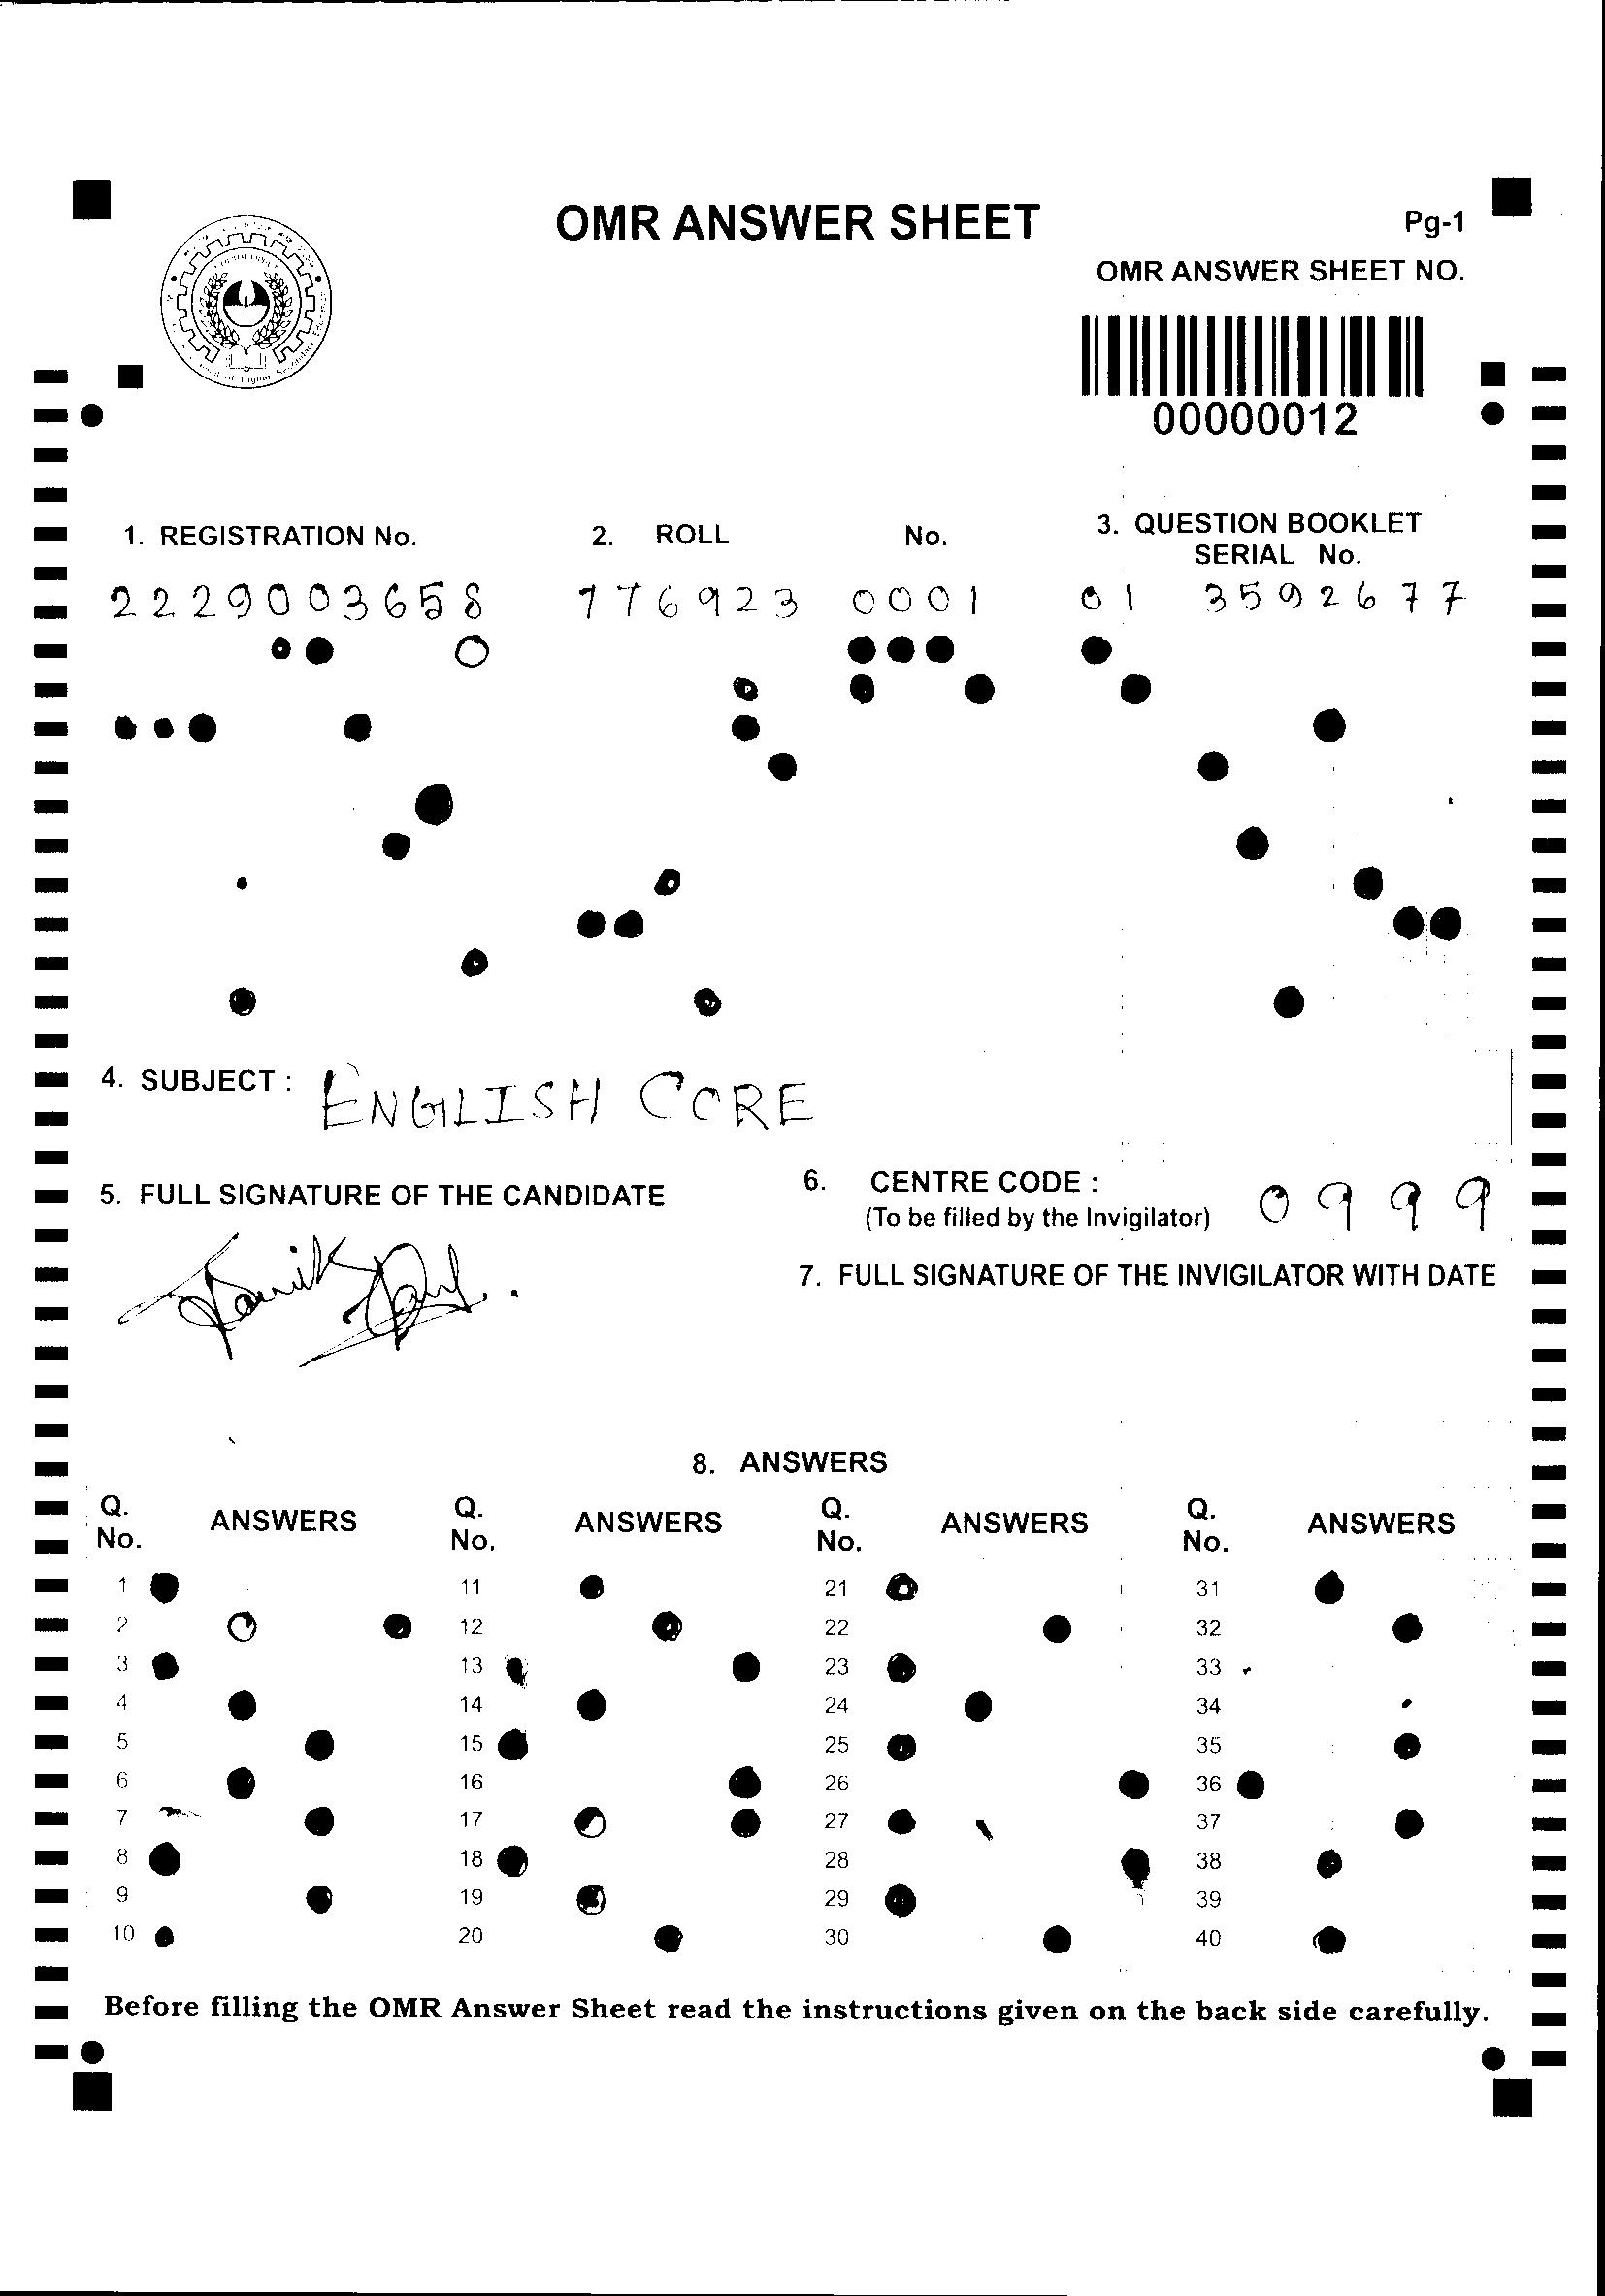 OMR ANSWER SHEET
Pg-1
OMR ANSWER SHEET NO.
00000012
1. REGISTRATION No.
2. ROLL No.
3. QUESTION BOOKLET
SERIAL No.
2229003658
776923 0001
01 3592677
4. SUBJECT : ENGLISH CORE
5. FULL SIGNATURE OF THE CANDIDATE
6. CENTRE CODE : 0999
(To be filled by the Invigilator)
7. FULL SIGNATURE OF THE INVIGILATOR WITH DATE
8. ANSWERS
Q. No. ANSWERS Q. No. ANSWERS Q. No. ANSWERS Q. No. ANSWERS
1 11 21 31
2 12 22 32
3 13 23 33
4 14 24 34
5 15 25 35
6 16 26 36
7 17 27 37
8 18 28 38
9 19 29 39
10 20 30 40
Before filling the OMR Answer Sheet read the instructions given on the back side carefully.